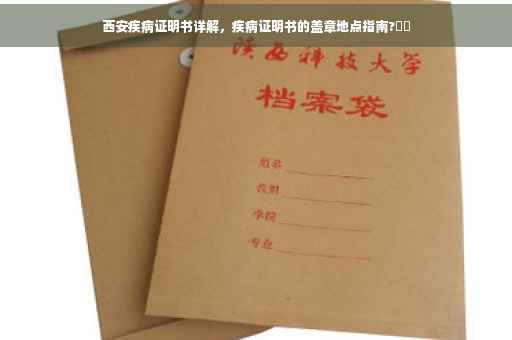 西安疾病证明书详解，疾病证明书的盖章地点指南?▯▯
陕西科技大学
档案袋
姓名
类别
学院
专业